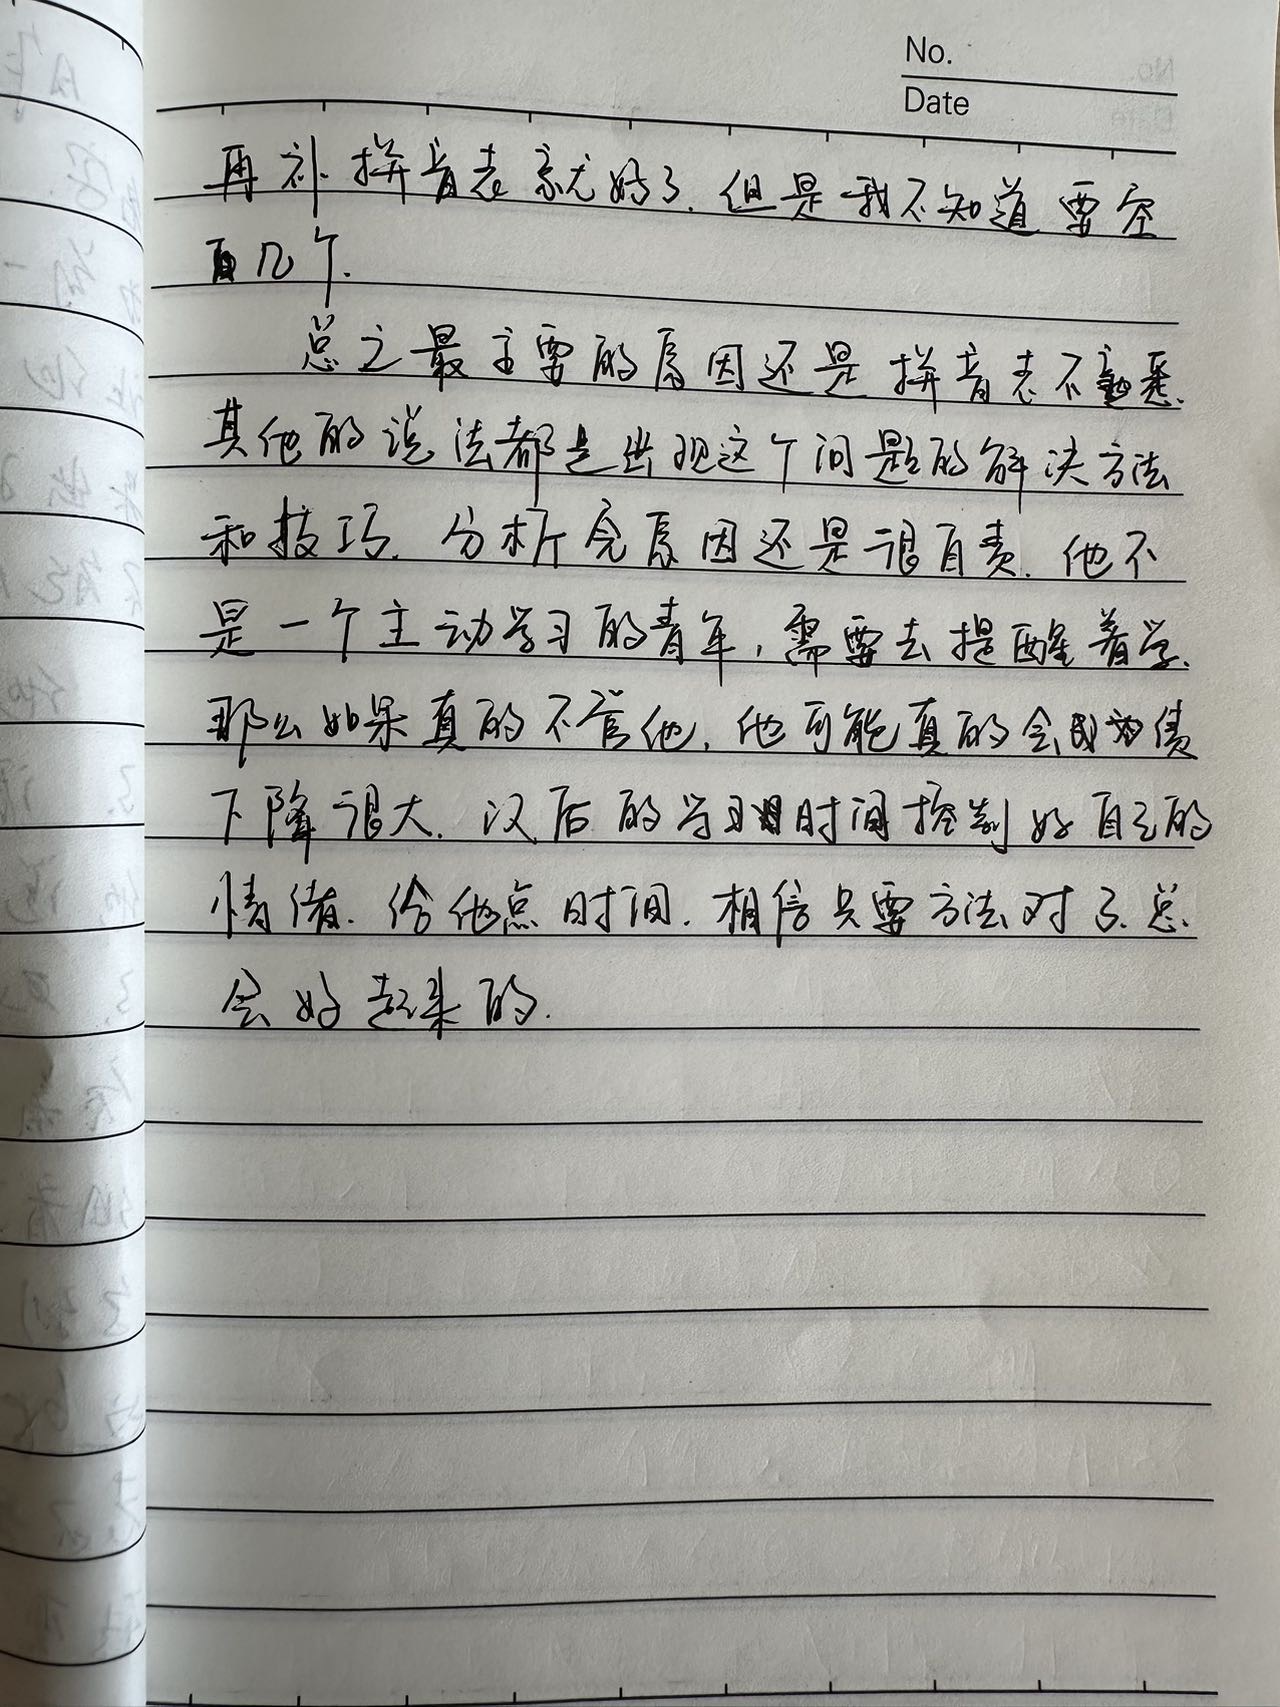 No.
Date
再补拼音表就好了.但是我不知道要空
白几个.
总之最主要的原因还是拼音表不熟悉.
其他的说法都是出现这个问题的解决方法
和技巧.分析完原因还是很自责.他不
是一个主动学习的青年,需要去提醒着学.
那么如果真的不管他,他可能真的会成为绩
下降很大.以后的学习时间控制好自己的
情绪.给他点时间.相信只要方法对了.总
会好起来的.